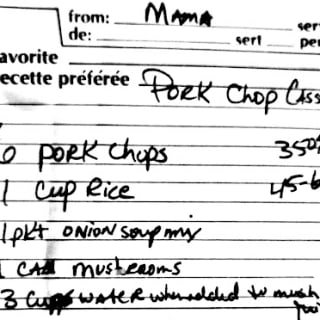 from: MAMA ser
de: sert per
avorite
ecette préférée PORK Chop Cass
0 PORK Chops 350°
1 Cup Rice 45-6
1 pkt ONION SOUP mix
1 CAN MUSHROOMS
3 Cups WATER when added to mush